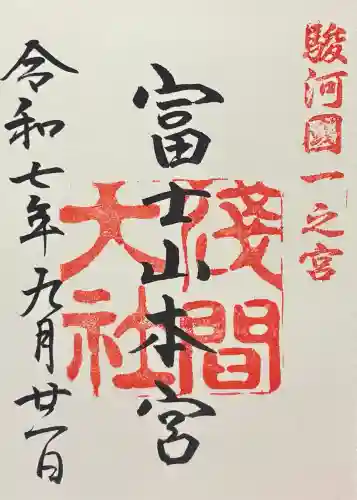 駿河國一之宮
富士山本宮
淺間
大社
令和七年九月廿一日